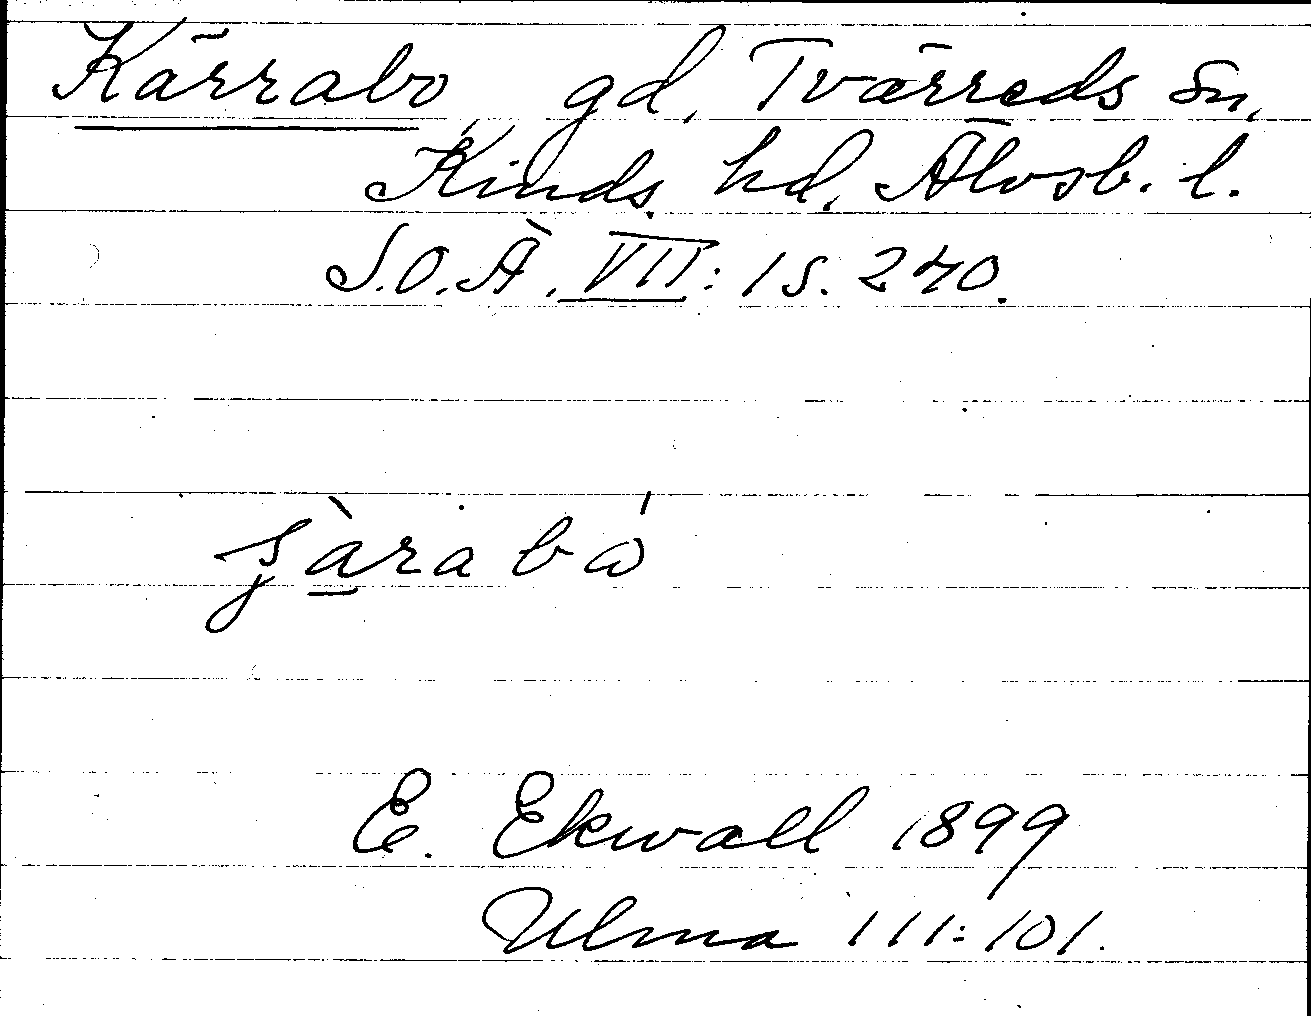 Kärrabo, gd, Tvärreds sn,
Kinds hd, Älvsb. l.
S.O.Ä. VII: 1 s. 240.
E. Ekwall 1899
Ulma 111:101.